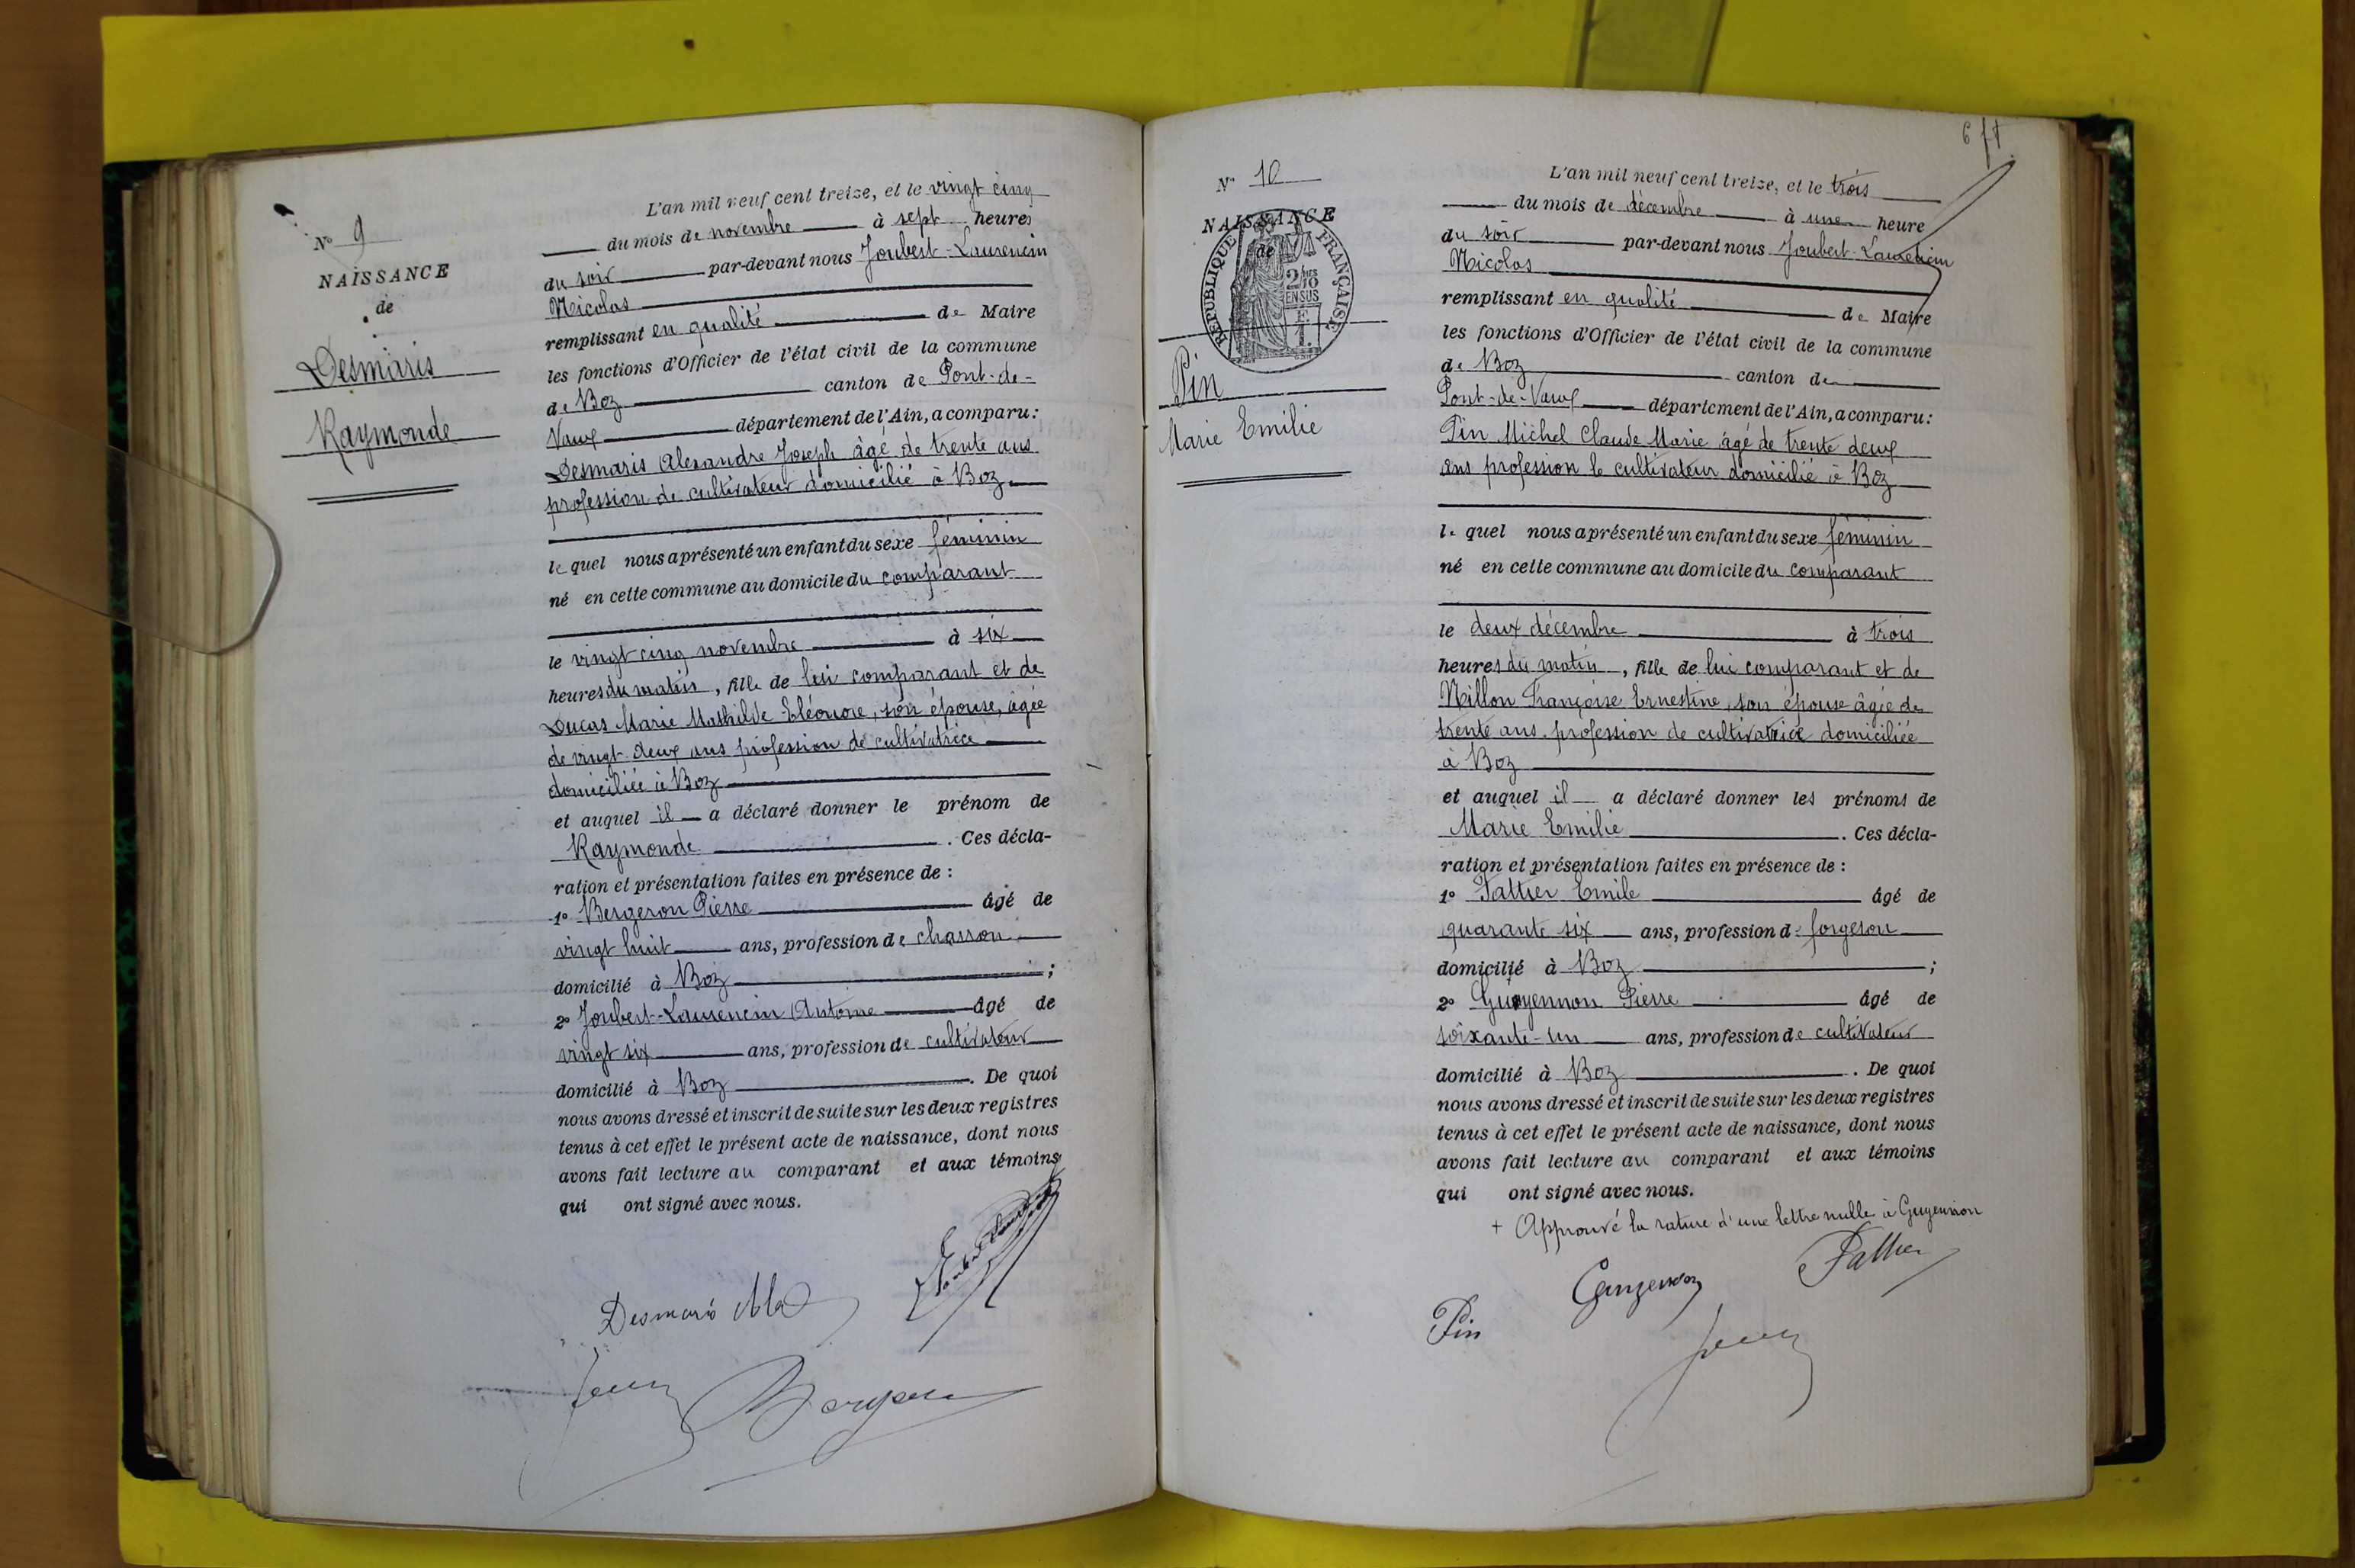 N° 9
NAISSANCE
de
Desmaris
Raymonde
L'an mil neuf cent treize, et le vingt cinq
du mois de novembre à sept heures
du soir par-devant nous Joubert-Laurencin
Nicolas
remplissant en qualité de Maire
les fonctions d'Officier de l'état civil de la commune
de Boz canton de Pont-de-
Vaux département de l'Ain, a comparu:
Desmaris Alexandre Joseph âgé de trente ans
profession de cultivateur domicilié à Boz
lequel nous a présenté un enfant du sexe féminin
né en cette commune au domicile du comparant
le vingt cinq novembre à six
heures du matin, fille de lui comparant et de
Ducas Marie Mathilde Eléonore, son épouse, âgée
de vingt-deux ans profession de cultivatrice
domiciliée à Boz
et auquel il a déclaré donner le prénom de
Raymonde. Ces décla-
ration et présentation faites en présence de :
1° Bergeron Pierre âgé de
vingt huit ans, profession de charron
domicilié à Boz ;
2° Joubert-Laurencin Antoine âgé de
vingt six ans, profession de cultivateur
domicilié à Boz. De quoi
nous avons dressé et inscrit de suite sur les deux registres
tenus à cet effet le présent acte de naissance, dont nous
avons fait lecture au comparant et aux témoins
qui ont signé avec nous.
Desmaris
N° 10
NAISSANCE
de
REPUBLIQUE FRANÇAISE
2/10
EN SUS
Pin
Marie Emilie
L'an mil neuf cent treize, et le trois
du mois de décembre à une heure
du soir par-devant nous Joubert-Laurencin
Nicolas
remplissant en qualité de Maire
les fonctions d'Officier de l'état civil de la commune
de Boz canton de
Pont-de-Vaux département de l'Ain, a comparu:
Pin Michel Claude Marie âgé de trente deux
ans profession de cultivateur domicilié à Boz
lequel nous a présenté un enfant du sexe féminin
né en cette commune au domicile du comparant
le deux décembre à trois
heures du matin, fille de lui comparant et de
Nillon Françoise Ernestine, son épouse âgée de
trente ans, profession de cultivatrice domiciliée
à Boz
et auquel il a déclaré donner les prénoms de
Marie Emilie. Ces décla-
ration et présentation faites en présence de :
1° Tattier Emile âgé de
quarante six ans, profession de forgeron
domicilié à Boz ;
2° Guyennon Pierre âgé de
soixante-un ans, profession de cultivateur
domicilié à Boz. De quoi
nous avons dressé et inscrit de suite sur les deux registres
tenus à cet effet le présent acte de naissance, dont nous
avons fait lecture au comparant et aux témoins
qui ont signé avec nous.
+ Approuvé la rature d'une lettre nulle à Guyennon
Pin